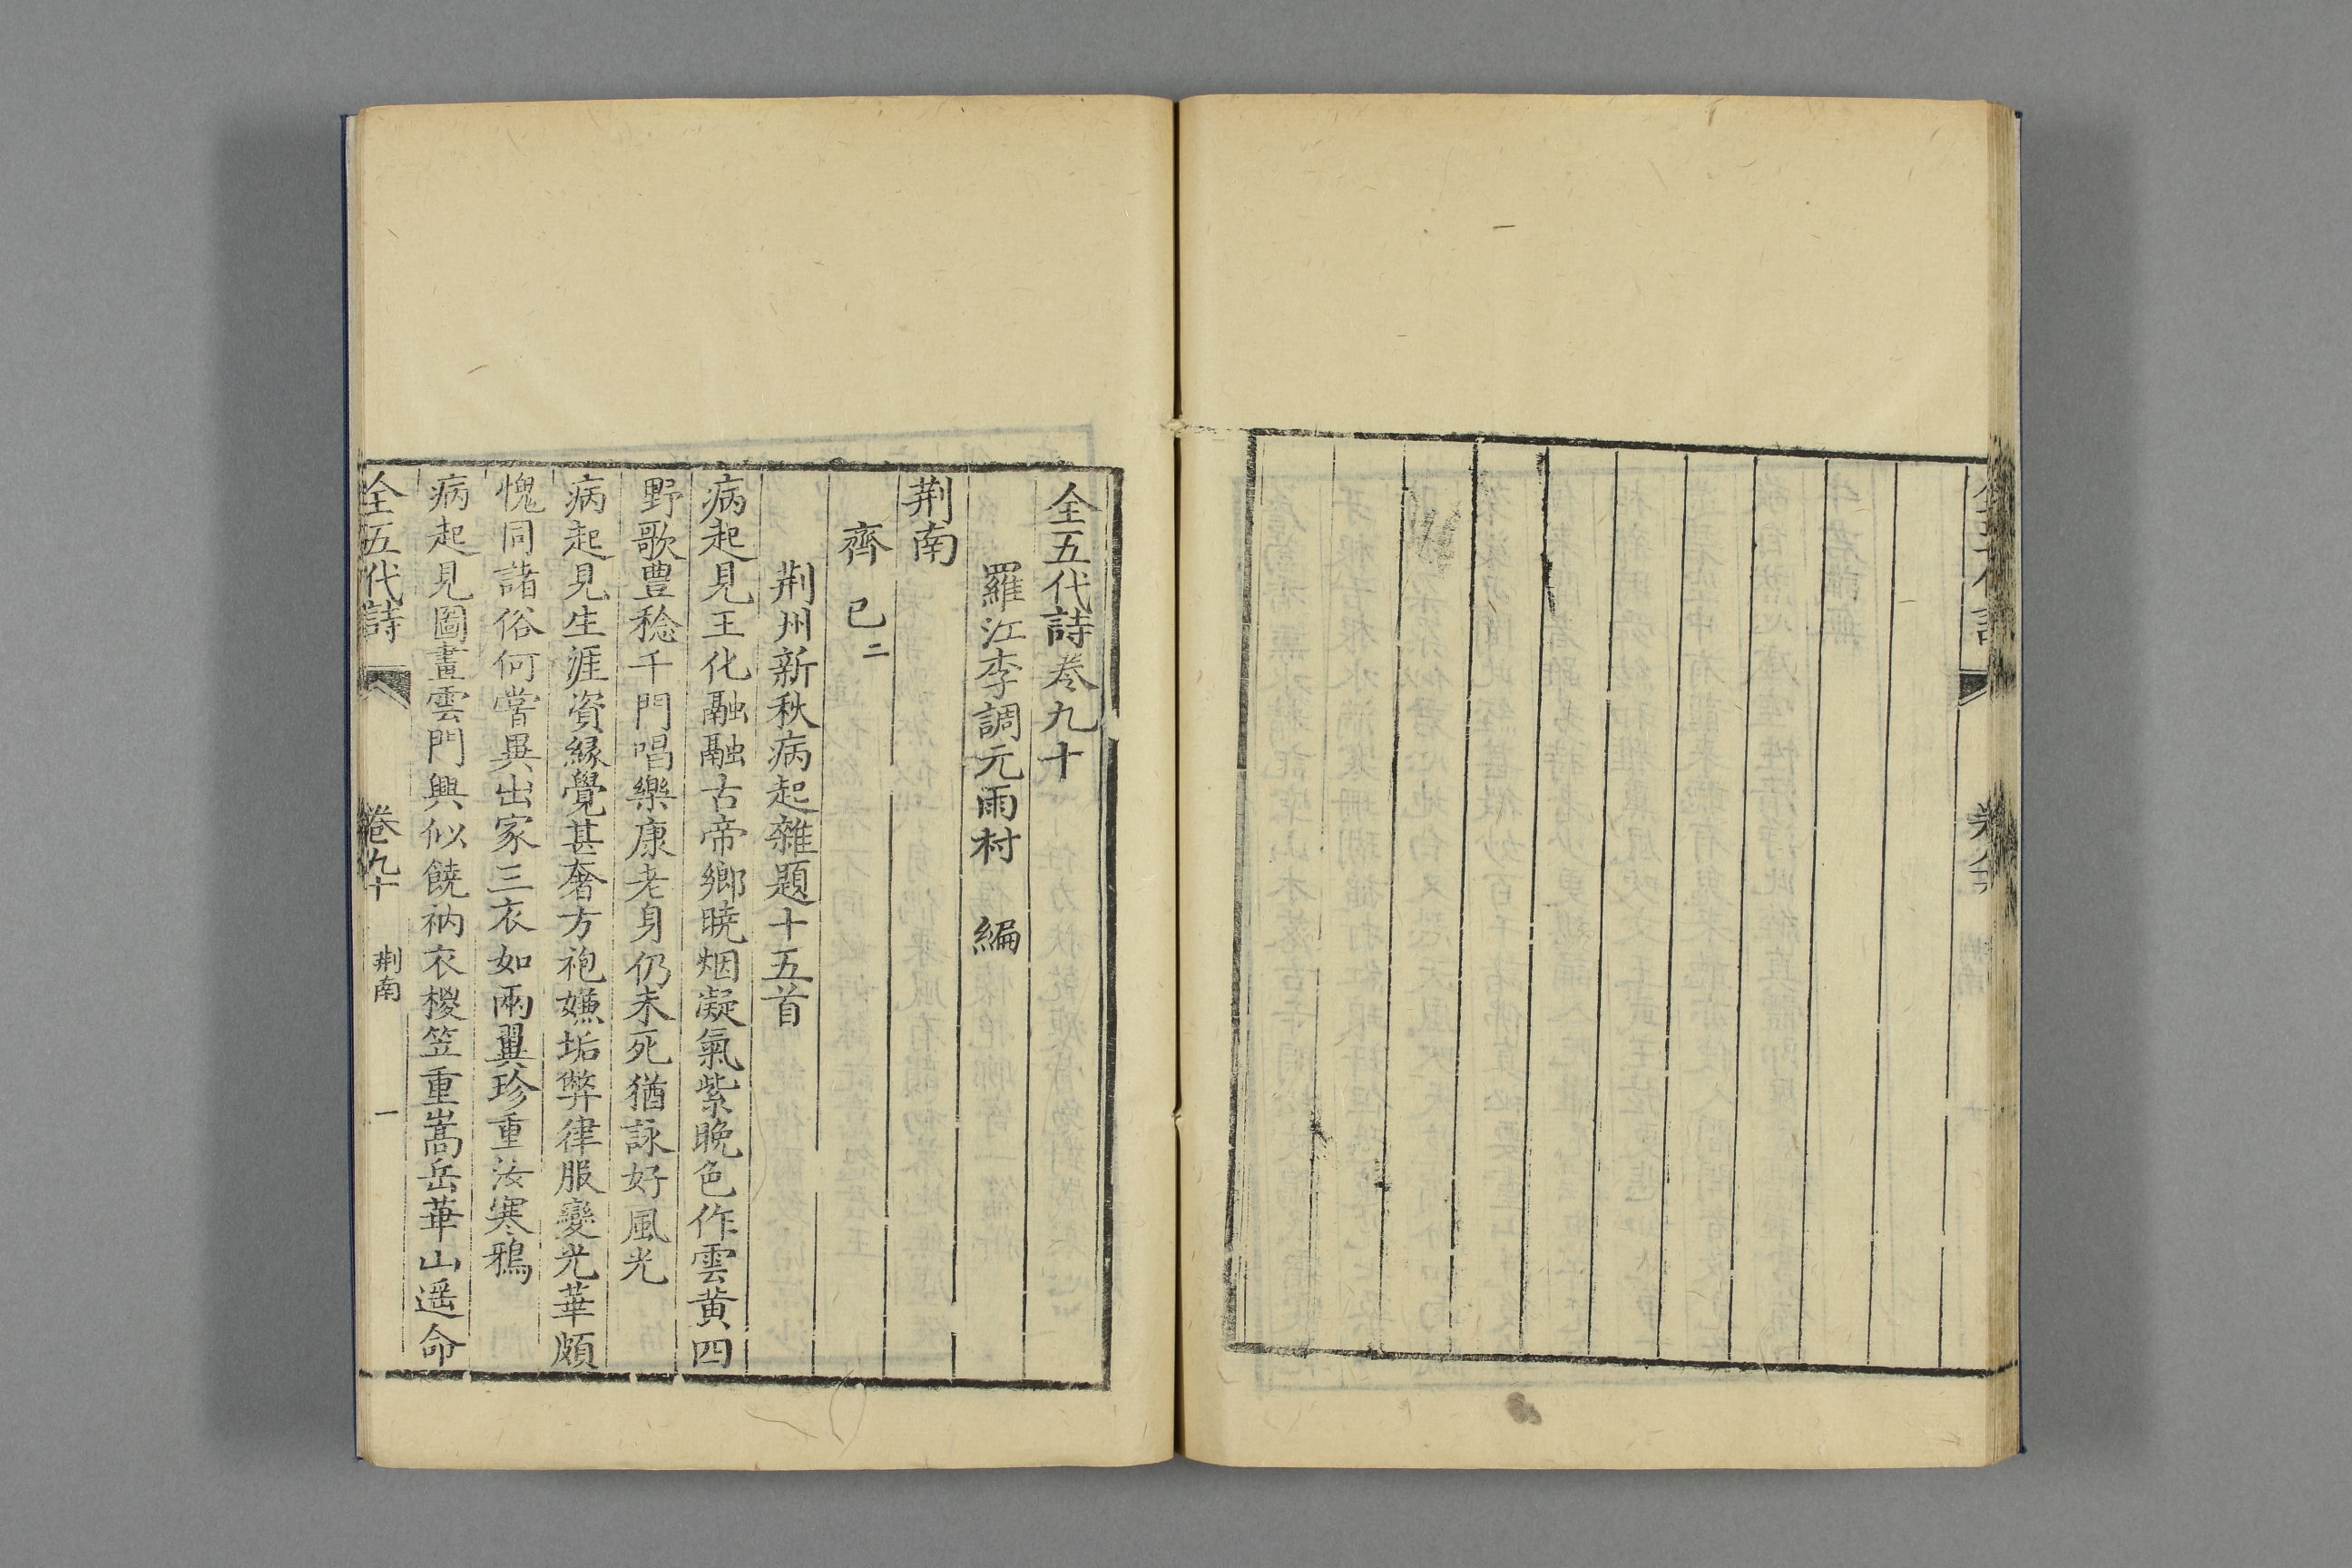 全五代詩卷九十
羅江李調元雨村 編
荆南
齊 已二
荆州新秋病起雜題十五首
病起見王化融融古帝鄉曉烟凝氣紫晚色作雲黄四
野歌豊稔千門唱樂康老身仍未死猶詠好風光
病起見生涯資緣覺甚奢方袍嫌垢弊律服變光華頗
愧同諸俗何嘗異出家三衣如兩翼珍重汝寒鴉
病起見圖畫雲門興似饒衲衣椶笠重嵩岳華山遥命
全五代詩 卷九十 荆南 一